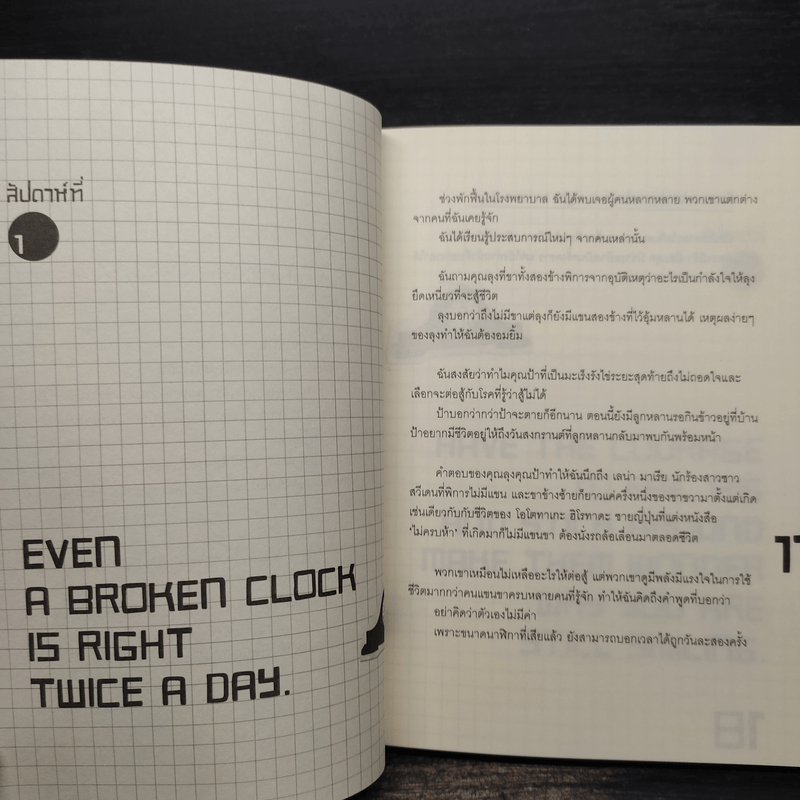 สัปดาห์ที่
1
EVEN
A BROKEN CLOCK
IS RIGHT
TWICE A DAY.
ช่วงพักฟื้นในโรงพยาบาล ฉันได้พบเจอผู้คนหลากหลาย พวกเขาแตกต่าง
จากคนที่ฉันเคยรู้จัก
ฉันได้เรียนรู้ประสบการณ์ใหม่ๆ จากคนเหล่านั้น
ฉันถามคุณลุงที่ขาทั้งสองข้างพิการจากอุบัติเหตุว่าอะไรเป็นกำลังใจให้ลุง
ยึดเหนี่ยวที่จะสู้ชีวิต
ลุงบอกว่าถึงไม่มีขาแต่ลุงก็ยังมีแขนสองข้างที่ไว้อุ้มหลานได้ เหตุผลง่ายๆ
ของลุงทำให้ฉันต้องอมยิ้ม
ฉันสงสัยว่าทำไมคุณป้าที่เป็นมะเร็งรังไข่ระยะสุดท้ายถึงไม่ถอดใจและ
เลือกจะต่อสู้กับโรคที่รู้ว่าสู้ไม่ได้
ป้าบอกว่ากว่าป้าจะตายก็อีกนาน ตอนนี้ยังมีลูกหลานรอกินข้าวอยู่ที่บ้าน
ป้าอยากมีชีวิตอยู่ให้ถึงวันสงกรานต์ที่ลูกหลานกลับมาพบกันพร้อมหน้า
คำตอบของคุณลุงคุณป้าทำให้ฉันนึกถึง เลน่า มาเรีย นักร้องสาวชาว
สวีเดนที่พิการไม่มีแขน และขาข้างซ้ายก็ยาวแค่ครึ่งหนึ่งของขาขวามาตั้งแต่เกิด
เช่นเดียวกับกับชีวิตของ โอโตทาเกะ ฮิโรทาดะ ชายญี่ปุ่นที่แต่งหนังสือ
'ไม่ครบห้า' ที่เกิดมาก็ไม่มีแขนขา ต้องนั่งรถล้อเลื่อนมาตลอดชีวิต
พวกเขาเหมือนไม่เหลืออะไรให้ต่อสู้ แต่พวกเขาดูมีพลังมีแรงใจในการใช้
ชีวิตมากกว่าคนแขนขาครบหลายคนที่รู้จัก ทำให้ฉันคิดถึงคำพูดที่บอกว่า
อย่าคิดว่าตัวเองไม่มีค่า
เพราะขนาดนาฬิกาที่เสียแล้ว ยังสามารถบอกเวลาได้ถูกวันละสองครั้ง